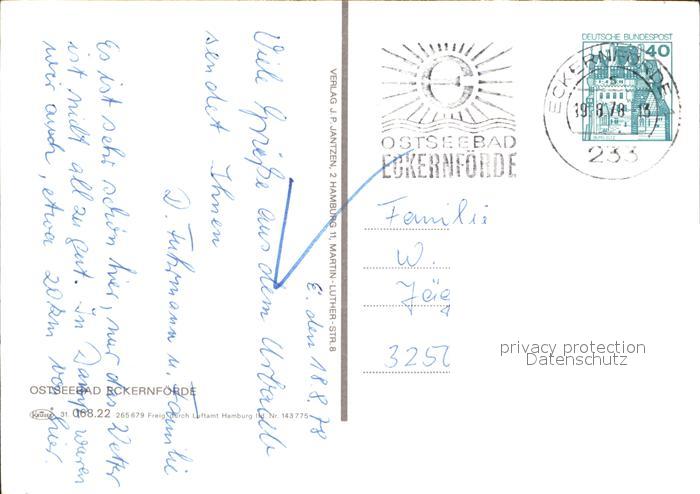 E. den 18.8.78
Viele Grüße aus dem Urlaub
sendet Ihnen
D. Fuhrmann u. Familie
Es ist sehr schön hier, nur das Wetter
ist nicht all zu gut. In Damp waren
wir auch, etwa 20 km von hier.
OSTSEEBAD ECKERNFÖRDE
Krüger 31. 168.22 265679 Freig. durch Luftamt Hamburg Nr. 143775
VERLAG J. P. JANTZEN, 2 HAMBURG 11, MARTIN-LUTHER-STR. 8
OSTSEEBAD
ECKERNFÖRDE
DEUTSCHE BUNDESPOST
40
ECKERNFÖRDE
s
19.8.78-13
233
Familie
W.
3250
privacy protection
Datenschutz